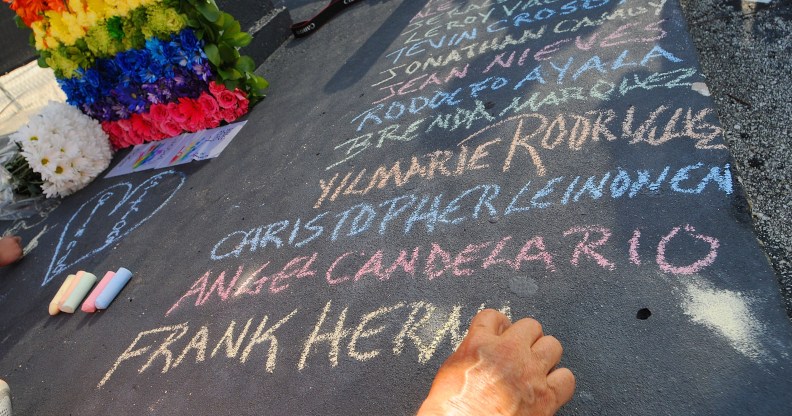 LEROY VAL
TEVIN CROSB
JONATHAN CAMUY
JEAN NIEVES
RODOLFO AYALA
BRENDA MARQUEZ
YILMARIE RODRIGUEZ
CHRISTOPHER LEINONEN
ANGEL CANDELARIO
FRANK HERN